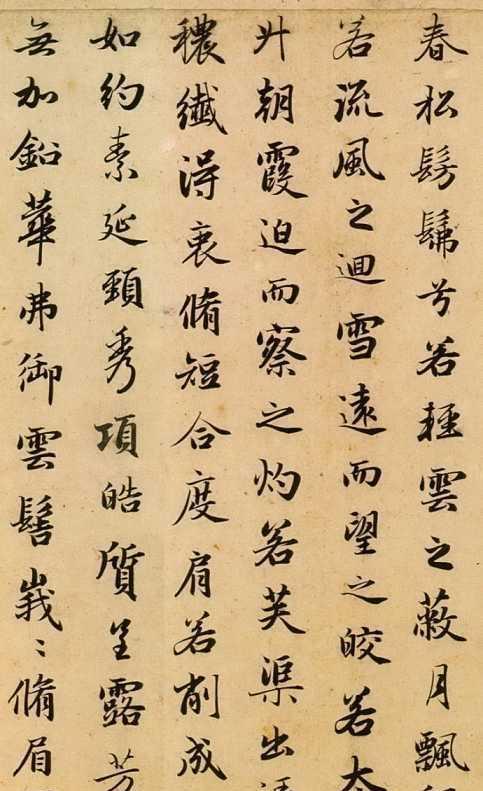 春松髣髴兮若輕雲之蔽月飄
若流風之迴雪遠而望之皎若太
升朝霞迫而察之灼若芙渠出
穠纖得衷脩短合度肩若削成
如約素延頸秀項皓質呈露芳
無加鉛華弗御雲髻峩〻脩眉